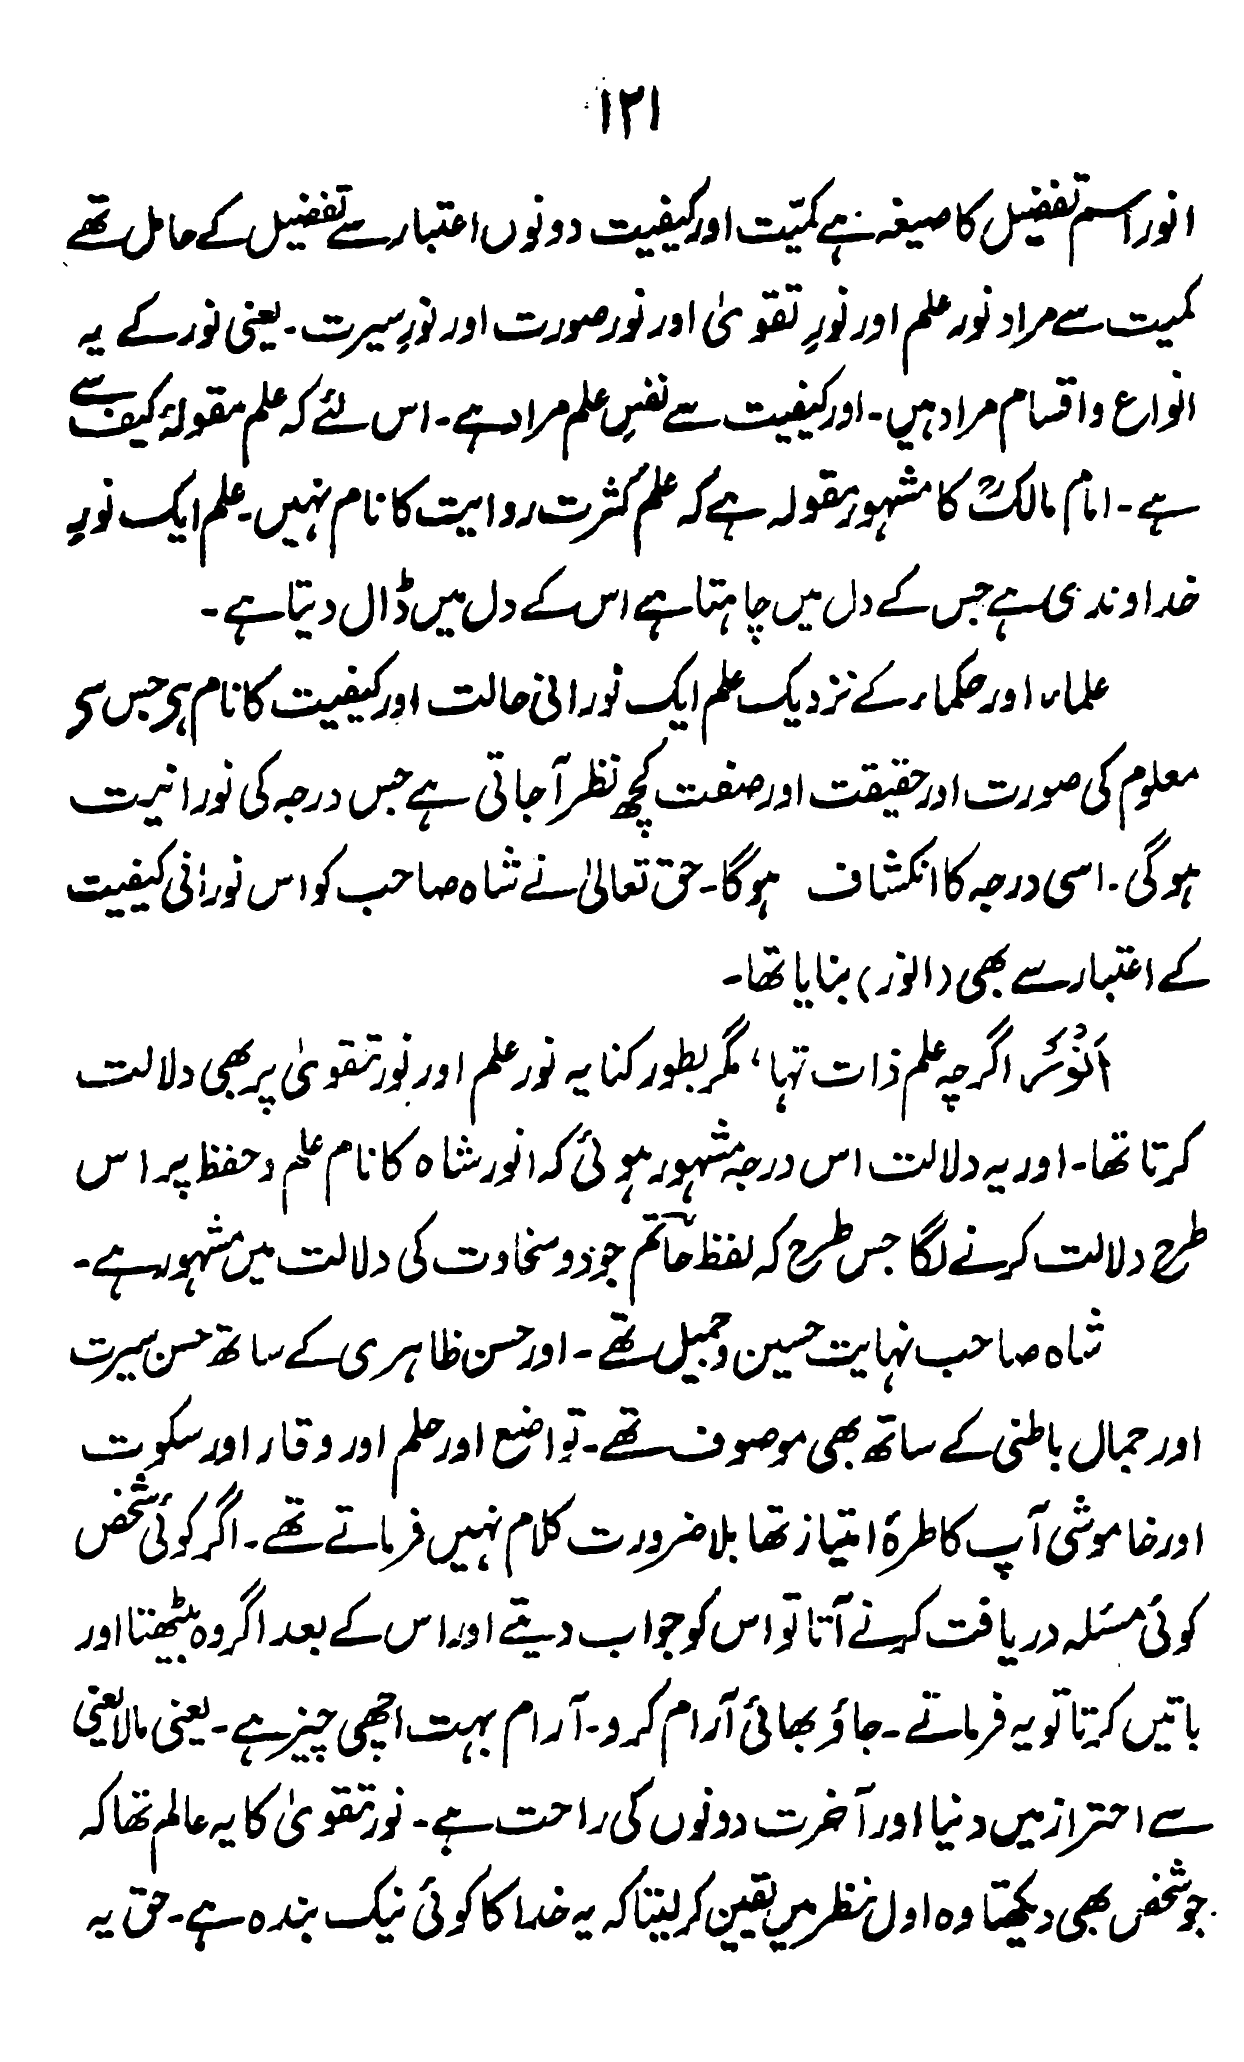 ۱۲۱
انور اسم تفضیل کا صیغہ ہے کمیّت اور کیفیت دونوں اعتبار سے تفضیل کے حامل تھے
کمیت سے مراد نور علم اور نورِ تقویٰ اور نور صورت اور نورِ سیرت۔ یعنی نور کے یہ
انواع و اقسام مراد ہیں۔ اور کیفیت سے نفسِ علم مراد ہے۔ اس لئے کہ علم مقولۂ کیف سے
ہے۔ امام مالکؒ کا مشہور مقولہ ہے کہ علم کثرت روایت کا نام نہیں۔ علم ایک نورِ
خداوندی ہے جس کے دل میں چاہتا ہے اس کے دل میں ڈال دیتا ہے۔
علماء اور حکماء کے نزدیک علم ایک نورانی حالت اور کیفیت کا نام ہی جس سی
معلوم کی صورت اور حقیقت اور صفت کچھ نظر آجاتی ہے جس درجہ کی نورانیت
ہوگی۔ اسی درجہ کا انکشاف ہوگا۔ حق تعالیٰ نے شاہ صاحب کو اس نورانی کیفیت
کے اعتبار سے بھی (انور) بنایا تھا۔
اَنْوَرُ اگرچہ علم ذات تہا، مگر بطور کنایہ نور علم اور نور تقویٰ پر بھی دلالت
کرتا تھا۔ اور یہ دلالت اس درجہ مشہور ہوئی کہ انور شاہ کا نام علم و حفظ پر اس
طرح دلالت کرنے لگا جس طرح کہ لفظ حاتم جود و سخاوت کی دلالت میں مشہور ہے۔
شاہ صاحب نہایت حسین و جمیل تھے۔ اور حسن ظاہری کے ساتھ حسن سیرت
اور جمال باطنی کے ساتھ بھی موصوف تھے۔ تواضع اور حلم اور وقار اور سکوت
اور خاموشی آپ کا طرۂ امتیاز تھا بلا ضرورت کلام نہیں فرماتے تھے۔ اگر کوئی شخص
کوئی مسئلہ دریافت کرنے آتا تو اس کو جواب دیتے اور اس کے بعد اگر وہ بیٹھتا اور
باتیں کرتا تو یہ فرماتے۔ جاؤ بھائی آرام کرو۔ آرام بہت اچھی چیز ہے۔ یعنی مالایعنی
سے احتراز میں دنیا اور آخرت دونوں کی راحت ہے۔ نور تقویٰ کا یہ عالم تھا کہ
جو شخص بھی دیکھتا وہ اول نظر میں یقین کر لیتا کہ یہ خدا کا کوئی نیک بندہ ہے۔ حق یہ